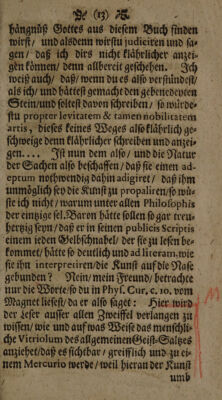 (13)
hängnüß Gottes aus diesem Buch finden
wirst/ und alsdenn wirstu judiciren und sa-
gen/ daß ich dirs nicht klährlicher anzei-
gen können/ denn allbereit geschehen. Ich
weiß auch/ daß/ wenn du es also verstündest/
als ich/ und hättest gemacht den gebenedeyeten
Stein/und soltest davon schreiben/ so würde-
stu propter levitatem & tamen nobilitatem
artis, dieses keines Weges also klährlich ge-
schweige denn klährlicher schreiben und anzei-
gen.... Ist nun dem also/ und die Natur
der Sachen also beschaffen/ daß sie einen ad-
eptum nothwendig dahin adigiret/ daß ihm
unmöglich sey die Kunst zu propaliren/ so wü-
ste ich nicht/ warum unter allen Philosophis
der eintzige sel. Baron hätte sollen so gar treu-
hertzig seyn/ daß er in seinen publicis Scriptis
einem jeden Gelbschnabel/ der sie zu lesen be-
kommet/ hätte so deutlich und ad literam, wie
sie ihn interpretiren/ die Kunst auf die Nase
gebunden? Nein/ mein Freund/ betrachte
nur die Worte/ so du in Phys. Cur. c. 10. vom
Magnet liesest/ da er also saget: Hier wird
der Leser ausser allen Zweiffel verlangen zu
wissen/ wie und auf was Weise das menschli-
che Vitriolum des allgemeinen Geist-Saltzes
anziehet/ daß es sichtbar/ greifflich und zu ei-
nem Mercurio werde/ weil hieran der Kunst
umb